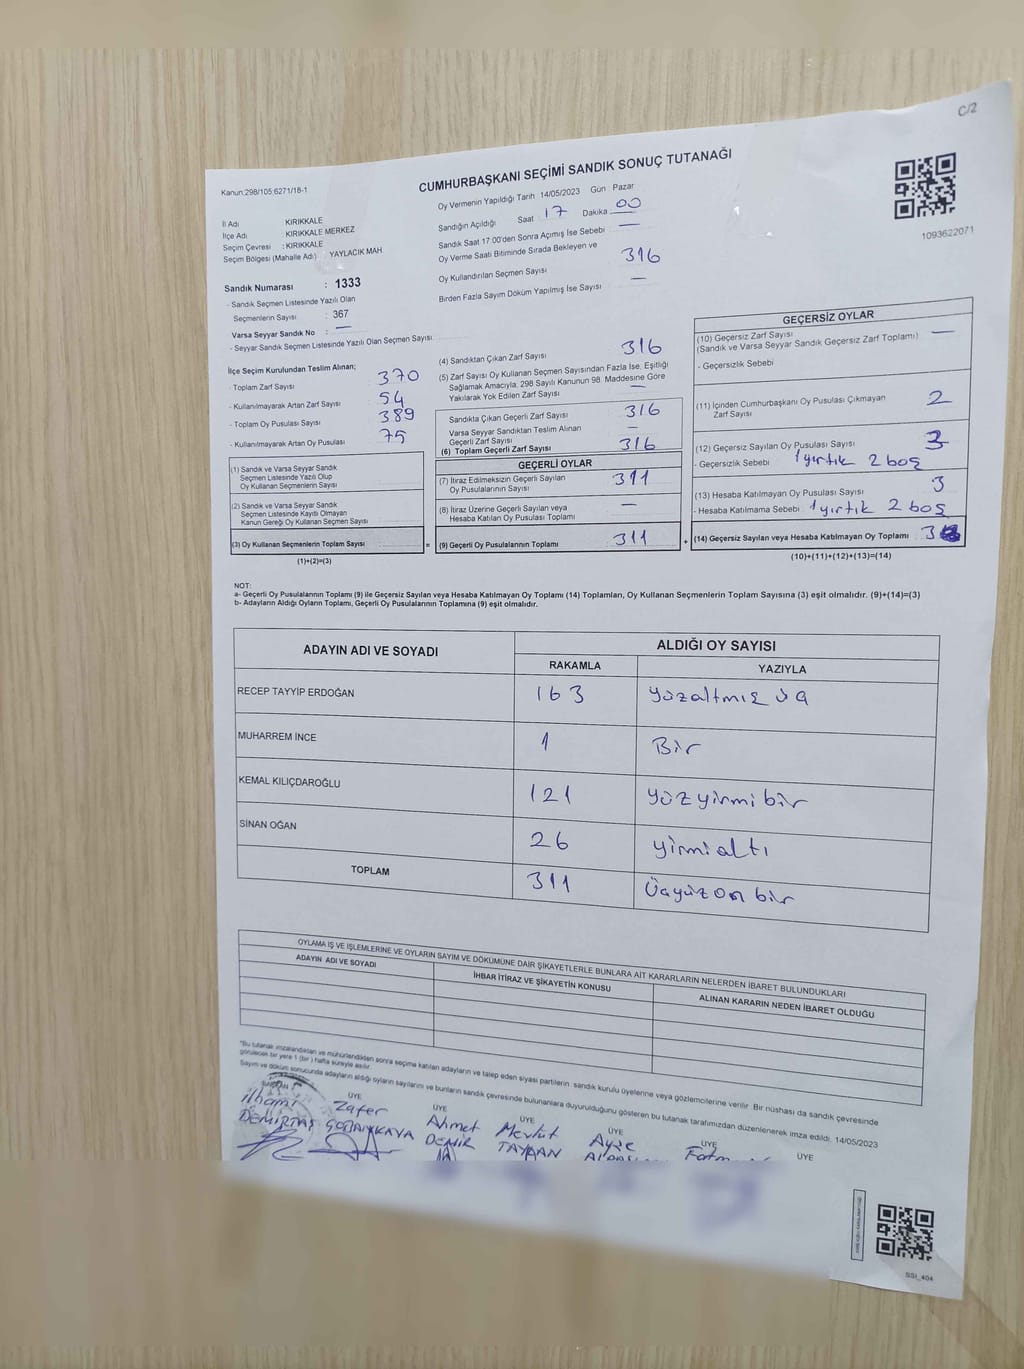 C/2
Kanun:298/105;6271/18-1
CUMHURBAŞKANI SEÇİMİ SANDIK SONUÇ TUTANAĞI
1093622071
İl Adı : KIRIKKALE
İlçe Adı : KIRIKKALE MERKEZ
Seçim Çevresi : KIRIKKALE
Seçim Bölgesi (Mahalle Adı) : YAYLACIK MAH
Sandık Numarası : 1333
- Sandık Seçmen Listesinde Yazılı Olan
Seçmenlerin Sayısı : 367
Varsa Seyyar Sandık No : —
- Seyyar Sandık Seçmen Listesinde Yazılı Olan Seçmen Sayısı
İlçe Seçim Kurulundan Teslim Alınan;
- Toplam Zarf Sayısı 370
- Kullanılmayarak Artan Zarf Sayısı 54
- Toplam Oy Pusulası Sayısı 389
- Kullanılmayarak Artan Oy Pusulası 75
(1) Sandık ve Varsa Seyyar Sandık
Seçmen Listesinde Yazılı Olup
Oy Kullanan Seçmenlerin Sayısı
(2) Sandık ve Varsa Seyyar Sandık
Seçmen Listesinde Kayıtlı Olmayan
Kanun Gereği Oy Kullanan Seçmen Sayısı
(3) Oy Kullanan Seçmenlerin Toplam Sayısı
(1)+(2)=(3)
Oy Vermenin Yapıldığı Tarih 14/05/2023 Gün : Pazar
Sandığın Açıldığı Saat 17 Dakika 00
Sandık Saat 17:00'den Sonra Açımış İse Sebebi —
Oy Verme Saati Bitiminde Sırada Bekleyen ve
Oy Kullandırılan Seçmen Sayısı 316
Birden Fazla Sayım Döküm Yapılmış İse Sayısı —
(4) Sandıktan Çıkan Zarf Sayısı 316
(5) Zarf Sayısı Oy Kullanan Seçmen Sayısından Fazla İse, Eşitliği
Sağlamak Amacıyla, 298 Sayılı Kanunun 98. Maddesine Göre
Yakılarak Yok Edilen Zarf Sayısı —
Sandıkta Çıkan Geçerli Zarf Sayısı 316
Varsa Seyyar Sandıktan Teslim Alınan
Geçerli Zarf Sayısı —
(6) Toplam Geçerli Zarf Sayısı 316
GEÇERLİ OYLAR
(7) İtiraz Edilmeksizin Geçerli Sayılan
Oy Pusulalarının Sayısı 311
(8) İtiraz Üzerine Geçerli Sayılan veya
Hesaba Katılan Oy Pusulası Toplamı —
= (9) Geçerli Oy Pusulalarının Toplamı 311
GEÇERSİZ OYLAR
(10) Geçersiz Zarf Sayısı —
(Sandık ve Varsa Seyyar Sandık Geçersiz Zarf Toplamı)
- Geçersizlik Sebebi
(11) İçinden Cumhurbaşkanı Oy Pusulası Çıkmayan
Zarf Sayısı 2
(12) Geçersiz Sayılan Oy Pusulası Sayısı 3
- Geçersizlik Sebebi 1 yırtık 2 boş
(13) Hesaba Katılmayan Oy Pusulası Sayısı 3
- Hesaba Katılmama Sebebi 1 yırtık 2 boş
+ (14) Geçersiz Sayılan veya Hesaba Katılmayan Oy Toplamı 3
(10)+(11)+(12)+(13)=(14)
NOT:
a- Geçerli Oy Pusulalarının Toplamı (9) ile Geçersiz Sayılan veya Hesaba Katılmayan Oy Toplamı (14) Toplamları, Oy Kullanan Seçmenlerin Toplam Sayısına (3) eşit olmalıdır. (9)+(14)=(3)
b- Adayların Aldığı Oyların Toplamı, Geçerli Oy Pusulalarının Toplamına (9) eşit olmalıdır.
ADAYIN ADI VE SOYADI ALDIĞI OY SAYISI
RAKAMLA YAZIYLA
RECEP TAYYİP ERDOĞAN 163 Yüzaltmış üç
MUHARREM İNCE 1 Bir
KEMAL KILIÇDAROĞLU 121 Yüzyirmi bir
SİNAN OĞAN 26 yirmialtı
TOPLAM 311 Üçyüzon bir
OYLAMA İŞ VE İŞLEMLERİNE VE OYLARIN SAYIM VE DÖKÜMÜNE DAİR ŞİKAYETLERLE BUNLARA AİT KARARLARIN NELERDEN İBARET BULUNDUKLARI
ADAYIN ADI VE SOYADI İHBAR İTİRAZ VE ŞİKAYETİN KONUSU ALINAN KARARIN NEDEN İBARET OLDUĞU
*Bu tutanak imzalandıktan ve mühürlendikten sonra seçime katılan adayların ve talep eden siyasi partilerin sandık kurulu üyelerine veya gözlemcilerine verilir. Bir nüshası da sandık çevresinde
görülecek bir yere 1 (bir) hafta süreyle asılır.
Sayım ve döküm sonucunda adayların aldığı oyların sayılarını ve bunların sandık çevresinde bulunanlara duyurulduğunu gösteren bu tutanak tarafımızdan düzenlenerek imza edildi. 14/05/2023
BAŞKAN ÜYE ÜYE ÜYE ÜYE ÜYE ÜYE
ilhami Zafer Ahmet Mevlüt Ayşe
DEMİRTAŞ DEMİR
SSI_404